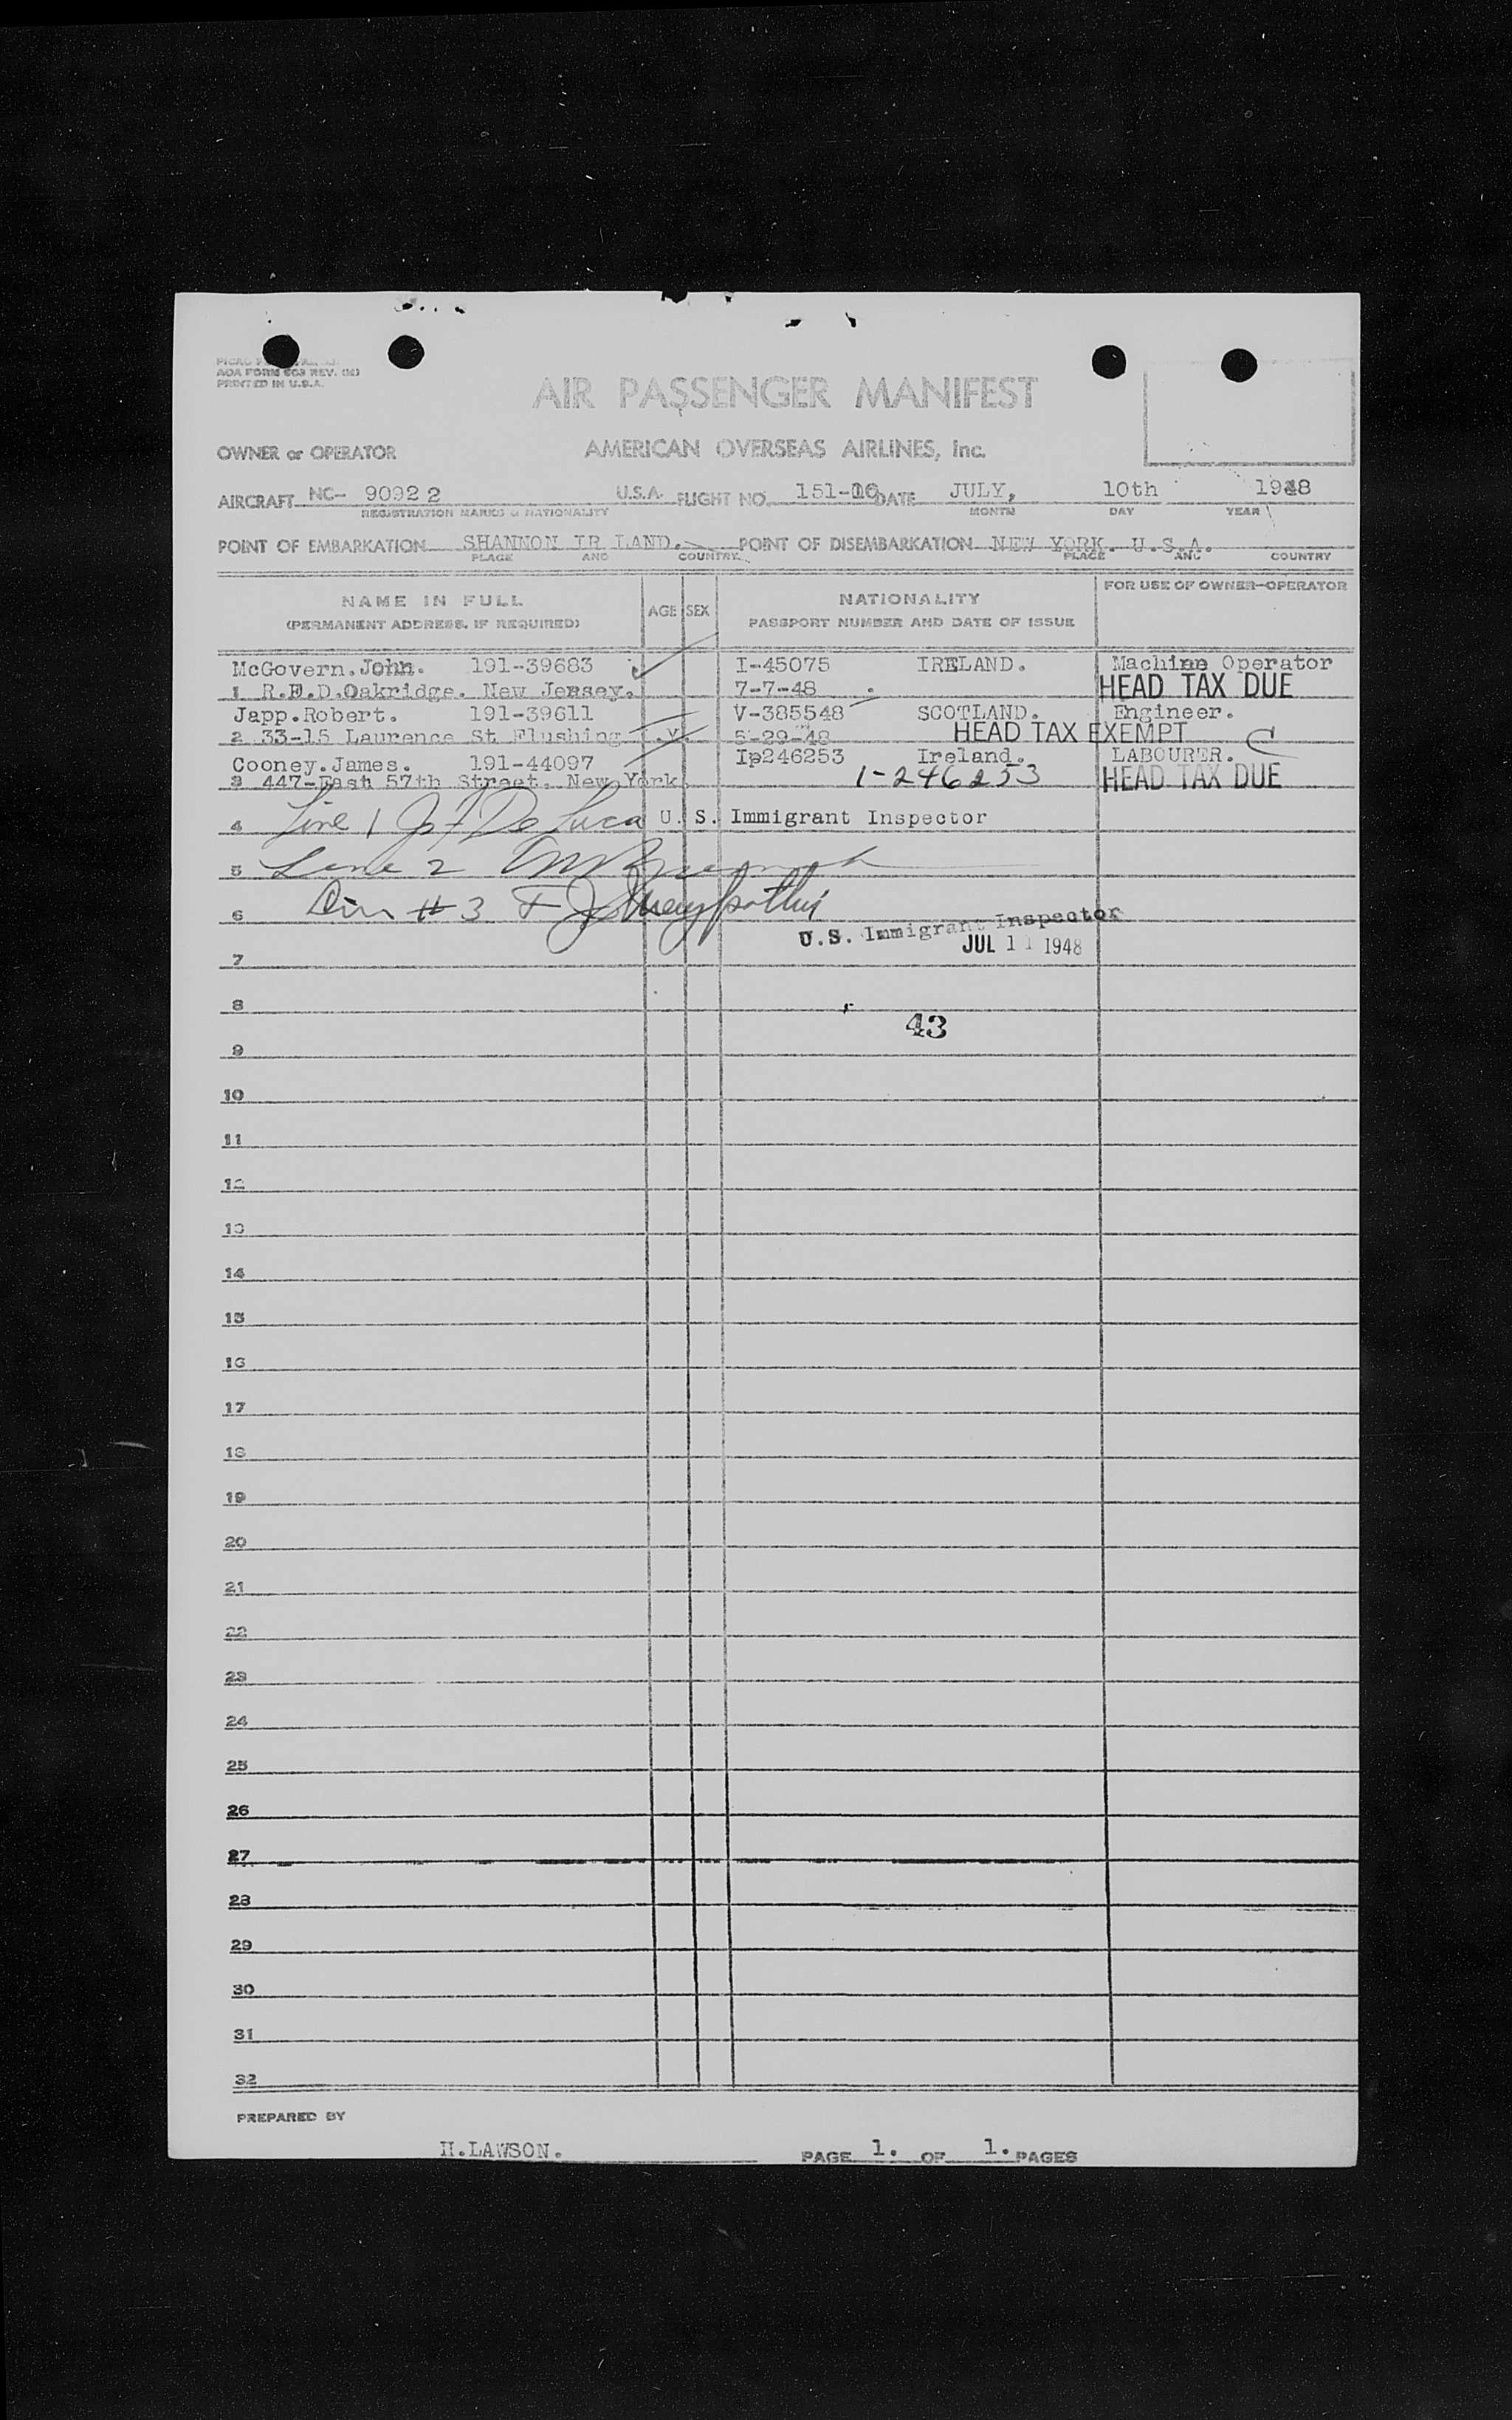 AOA FORM 603 REV. (M)
PRINTED IN U.S.A.
AIR PASSENGER MANIFEST
OWNER or OPERATOR AMERICAN OVERSEAS AIRLINES, Inc.
AIRCRAFT NC- 90922 U.S.A. FLIGHT NO. 151-16 DATE JULY, 10th 1948
REGISTRATION MARKS & NATIONALITY MONTH DAY YEAR
POINT OF EMBARKATION SHANNON IR LAND. POINT OF DISEMBARKATION NEW YORK. U.S.A.
PLACE AND COUNTRY PLACE AND COUNTRY
NAME IN FULL AGE SEX NATIONALITY FOR USE OF OWNER-OPERATOR
(PERMANENT ADDRESS, IF REQUIRED) PASSPORT NUMBER AND DATE OF ISSUE
McGovern.John. 191-39683 I-45075 IRELAND. Machine Operator
1 R.F.D.Oakridge. New Jersey. 7-7-48 . HEAD TAX DUE
Japp.Robert. 191-39611 V-385548 SCOTLAND. Engineer.
2 33-15 Laurence St Flushing .Y. 5-29-48 HEAD TAX EXEMPT C
Cooney.James. 191-44097 Ip246253 Ireland. LABOURER.
3 447-East 57th Street. New York. 1-246253 HEAD TAX DUE
4 Line 1 De Luca U. S. Immigrant Inspector
5 Line 2
6 # 3
U.S. Immigrant Inspector
7 JUL 11 1948
8
43
9
10
11
12
13
14
15
16
17
18
19
20
21
22
23
24
25
26
27
28
29
30
31
32
PREPARED BY
H.LAWSON. PAGE 1. OF 1. PAGES